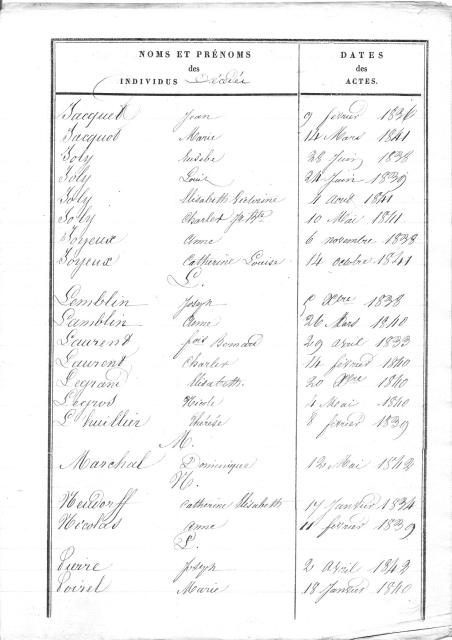 NOMS ET PRÉNOMS
des
INDIVIDUS Décédés
DATES
des
ACTES.
Jacquet Jean 9 février 1836
Jacquot Marie 14 Mars 1841
Joly Eusèbe 28 Juin 1838
Joly Louis 24 Juin 1839
Joly Elisabeth 4 Août 1841
Joly Charles Jn Bte 10 Mai 1841
Joyeux Anne 6 novembre 1838
Joyeux Catherine Louise 14 octbre 1841
L.
Lemblin Joseph 5 Xbre 1838
Lamblin Anne 26 Mars 1840
Laurent fois 29 avril 1833
Laurent Charles 14 février 1840
Legrand Elisabeth 20 Xbre 1840
Legros Nicole 4 Mai 1840
L'huillier Thérèse 8 février 1839
M.
Marchal Dominique 12 Mai 1842
N.
Neudorff Catherine Elisabeth 17 Janvier 1834
Nicolas Anne 11 février 1839
P.
Pierre Joseph 2 Avril 1842
Poirel Marie 18 Janvier 1840